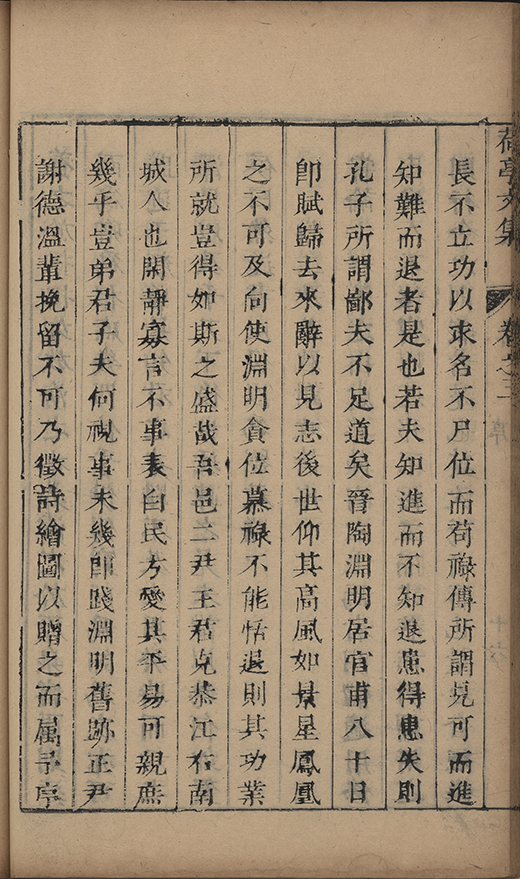 荷亭文集 卷之二
長不立功以求名不尸位而苟祿傳所謂見可而進
知難而退者是也若夫知進而不知退患得患失則
孔子所謂鄙夫不足道矣晉陶淵明居官甫八十日
卽賦歸去來辭以見志後世仰其高風如景星鳳凰
之不可及向使淵明貪位慕祿不能恬退則其功業
所就豈得如斯之盛哉吾邑二尹王君克恭江右南
城人也閑靜寡言不事表白民方愛其平易可親庶
幾乎豈弟君子夫何視事未幾卽踐淵明舊跡正尹
謝德溫輩挽留不可乃徵詩繪圖以贈之而属予序